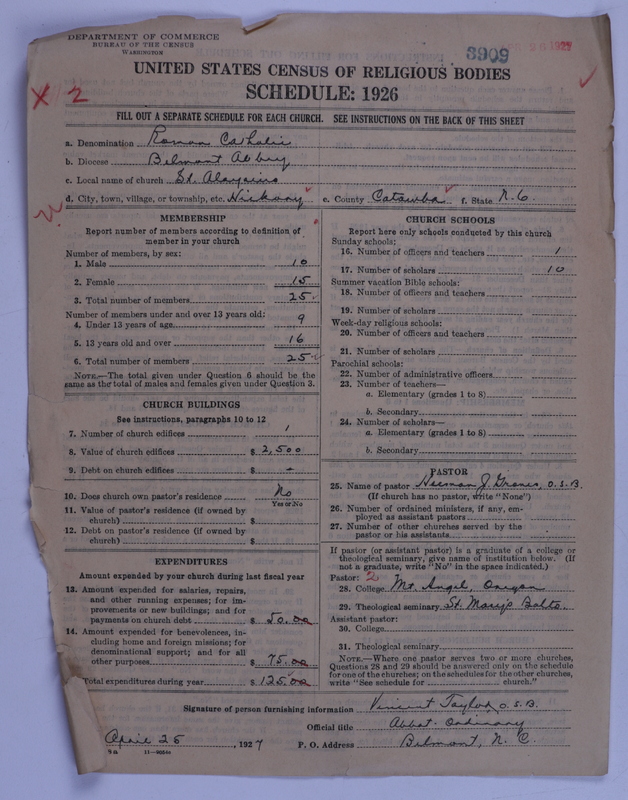 DEPARTMENT OF COMMERCE
BUREAU OF THE CENSUS
WASHINGTON
3909
UNITED STATES CENSUS OF RELIGIOUS BODIES
SCHEDULE: 1926
X 2
FILL OUT A SEPARATE SCHEDULE FOR EACH CHURCH. SEE INSTRUCTIONS ON THE BACK OF THIS SHEET
a. Denomination Roman Catholic
b. Diocese Belmont Abbey
c. Local name of church St. Aloysius
d. City, town, village, or township, etc. Hickory e. County Catawba f. State N. C.
MEMBERSHIP
Report number of members according to definition of member in your church
Number of members, by sex:
1. Male 10
2. Female 15
3. Total number of members 25
Number of members under and over 13 years old:
4. Under 13 years of age 9
5. 13 years old and over 16
6. Total number of members 25
NOTE.—The total given under Question 6 should be the
same as the total of males and females given under Question 3.
CHURCH BUILDINGS
See instructions, paragraphs 10 to 12
7. Number of church edifices 1
8. Value of church edifices $ 2,500
9. Debt on church edifices $ -
10. Does church own pastor's residence No
Yes or No
11. Value of pastor's residence (if owned by
church) $
12. Debt on pastor's residence (if owned by
church) $
EXPENDITURES
Amount expended by your church during last fiscal year
13. Amount expended for salaries, repairs,
and other running expenses; for im-
provements or new buildings; and for
payments on church debt $ 50.00
14. Amount expended for benevolences, in-
cluding home and foreign missions; for
denominational support; and for all
other purposes $ 75.00
Total expenditures during year $ 125.00
CHURCH SCHOOLS
Report here only schools conducted by this church
Sunday schools:
16. Number of officers and teachers 1
17. Number of scholars 10
Summer vacation Bible schools:
18. Number of officers and teachers
19. Number of scholars
Week-day religious schools:
20. Number of officers and teachers
21. Number of scholars
Parochial schools:
22. Number of administrative officers
23. Number of teachers—
a. Elementary (grades 1 to 8)
b. Secondary
24. Number of scholars—
a. Elementary (grades 1 to 8)
b. Secondary
PASTOR
25. Name of pastor Herman J. O.S.B.
(If church has no pastor, write "None")
26. Number of ordained ministers, if any, em-
ployed as assistant pastors
27. Number of other churches served by the
pastor or his assistants
If pastor (or assistant pastor) is a graduate of a college or
theological seminary, give name of institution below. (If
not a graduate, write "No" in the space indicated.)
Pastor: 2
28. College Mt. Angel, Oregon
29. Theological seminary St. Mary's Balto.
Assistant pastor:
30. College
31. Theological seminary
NOTE.—Where one pastor serves two or more churches,
Questions 28 and 29 should be answered only on the schedule
for one of the churches; on the schedules for the other churches,
write "See schedule for church."
Signature of person furnishing information Vincent Taylor, O.S.B.
Official title Abbot. Ordinary
April 25, 1927 P. O. Address Belmont, N. C.